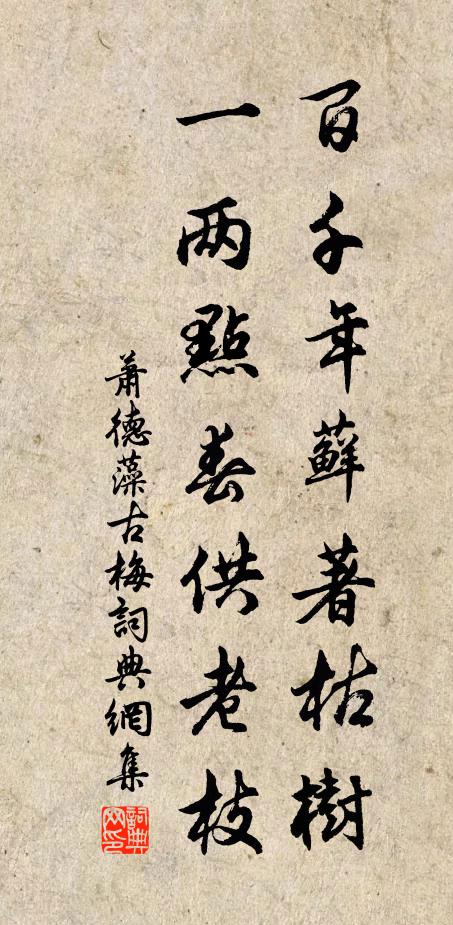 百千年蘚著枯樹
一两點春供老枝
蕭德藻古梅詞典網集
詞典网印